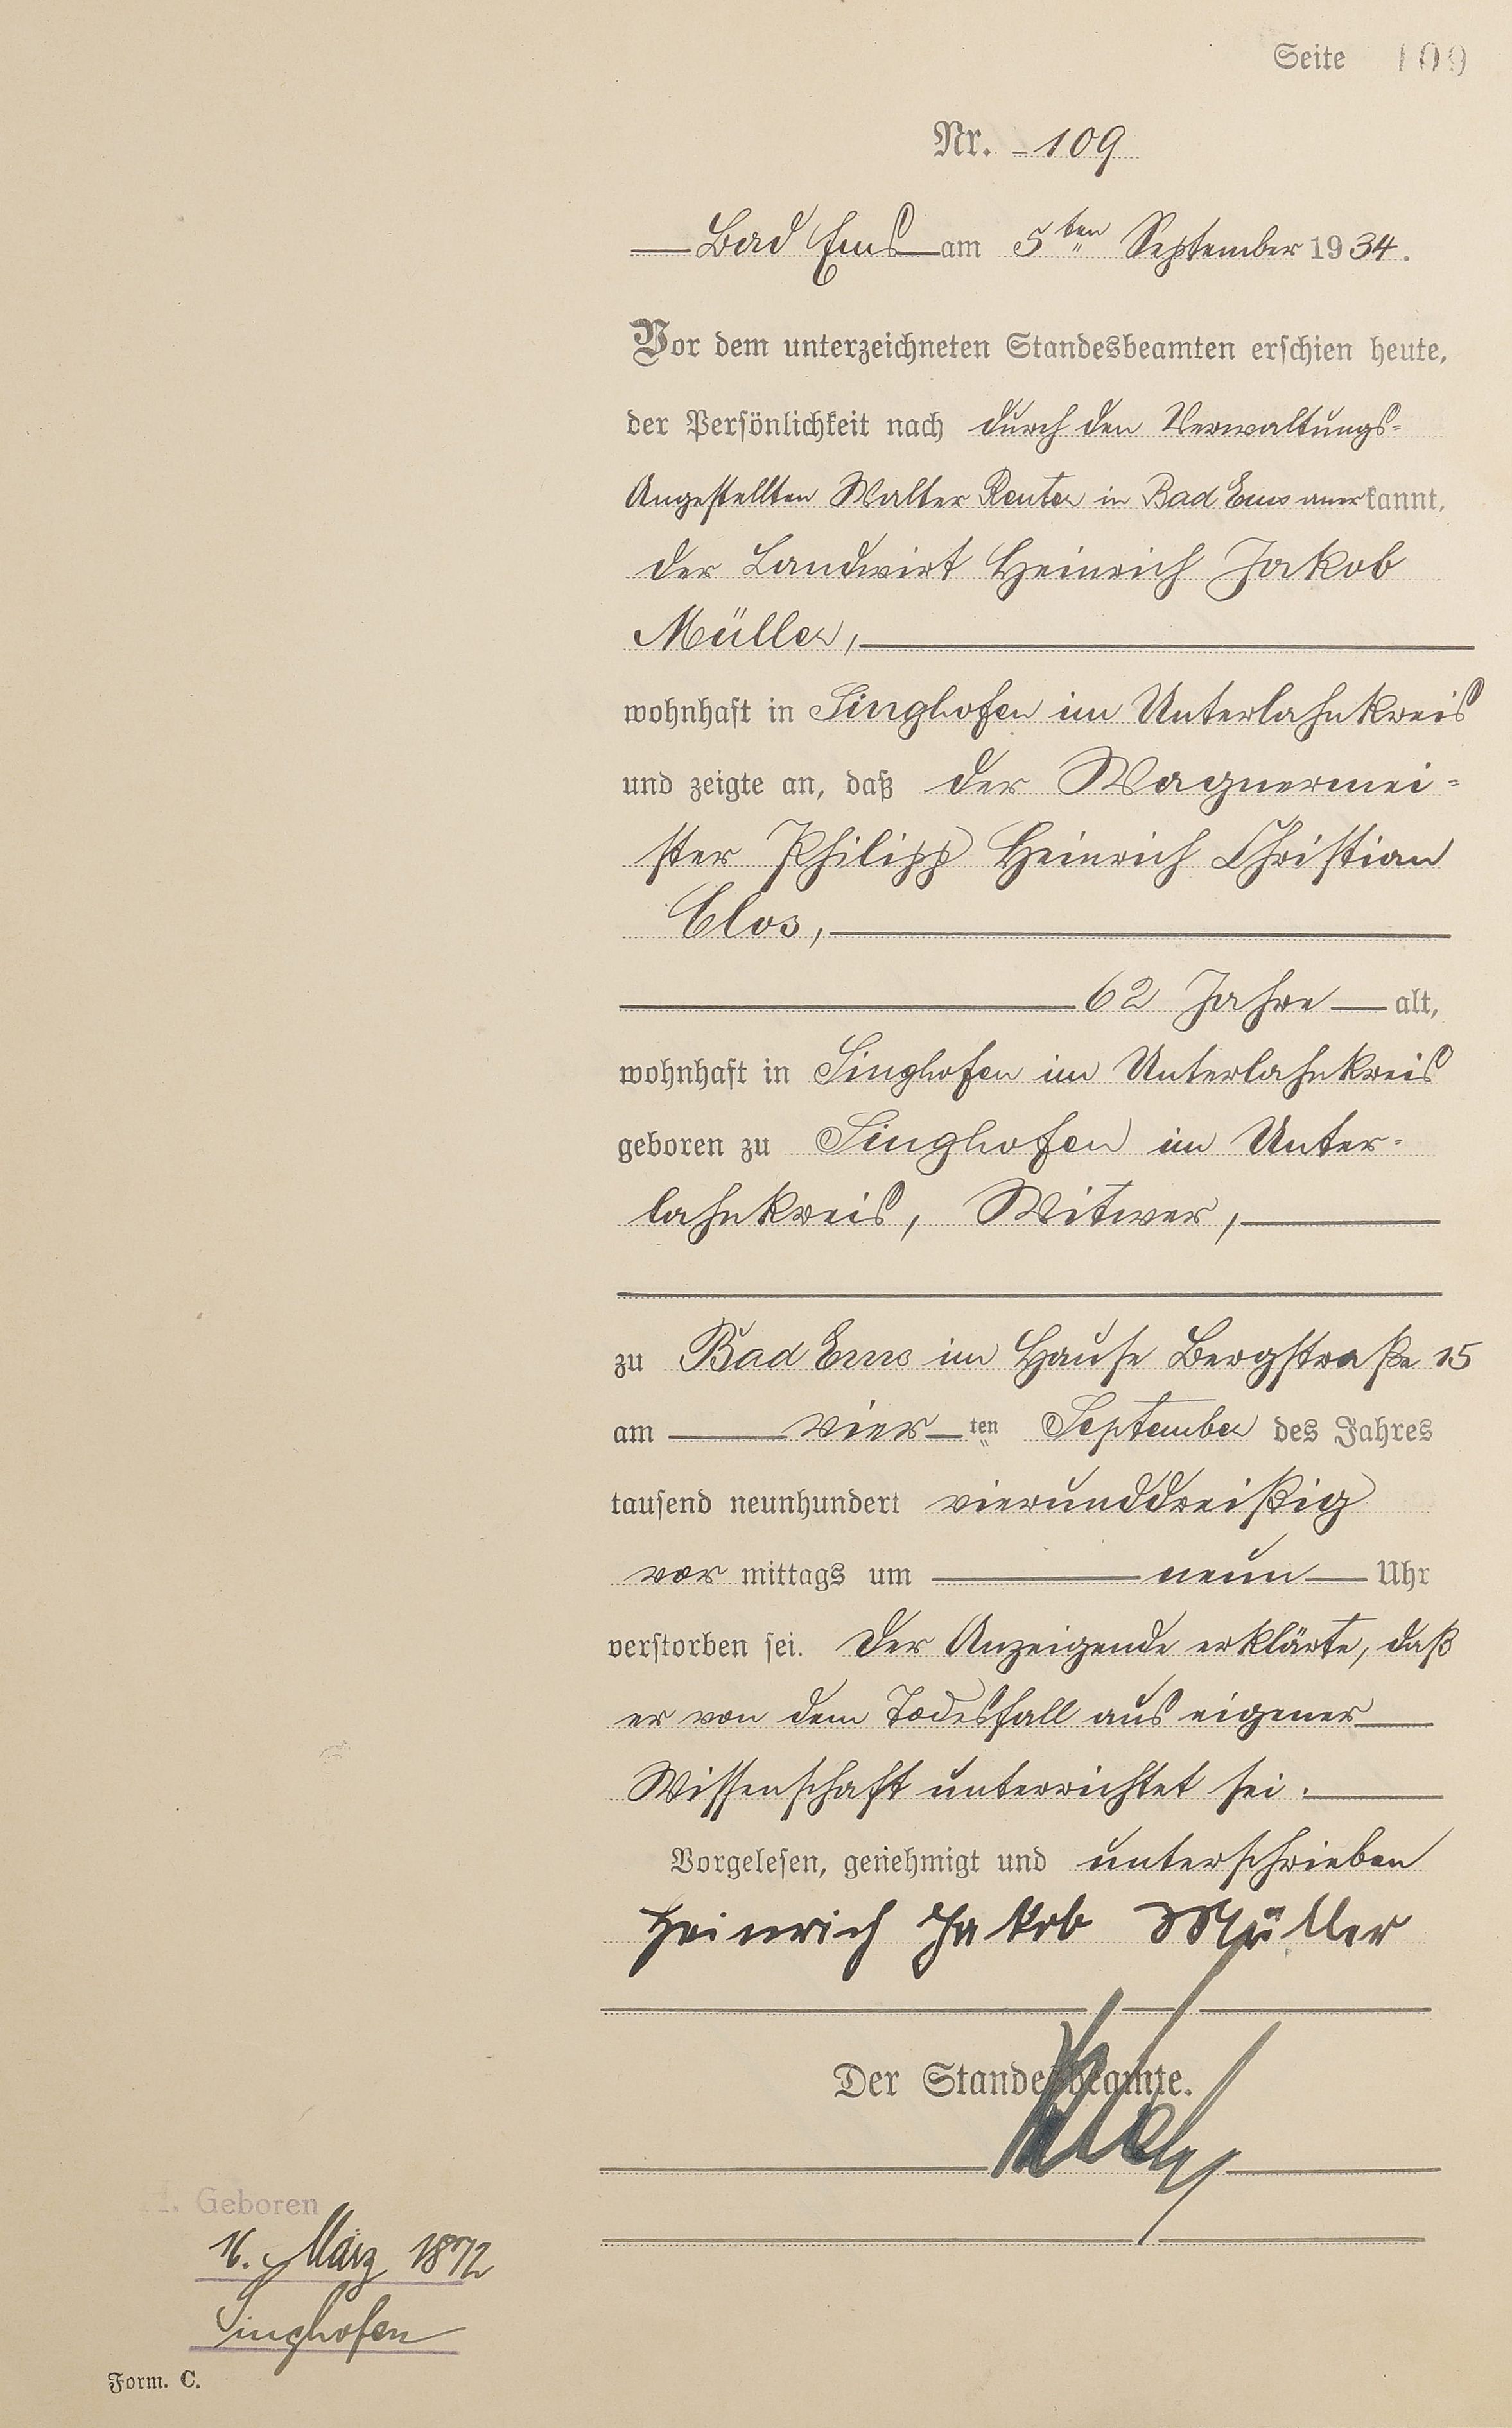 Seite 109
Nr. 109
Bad Ems am 5ten September 1934.
Vor dem unterzeichneten Standesbeamten erschien heute,
der Persönlichkeit nach durch den Verwaltungs-
Angestellten Walter Reuter in Bad Ems anerkannt,
der Landwirt Heinrich Jakob
Müller,
wohnhaft in Singhofen im Unterlahnkreis
und zeigte an, daß der Wagnermei-
ster Philipp Heinrich Christian
Clos,
62 Jahre alt,
wohnhaft in Singhofen im Unterlahnkreis
geboren zu Singhofen im Unter-
lahnkreis, Witwer,
zu Bad Ems im Hause Bergstraße 15
am vierten September des Jahres
tausend neunhundert vierunddreißig
vor mittags um neun Uhr
verstorben sei. Der Anzeigende erklärte, daß
er von dem Todesfall aus eigener
Wissenschaft unterrichtet sei.
Vorgelesen, genehmigt und unterschrieben
Heinrich Jakob Müller
Der Standesbeamte.
Geboren
16. März 1872
Singhofen
Form. C.